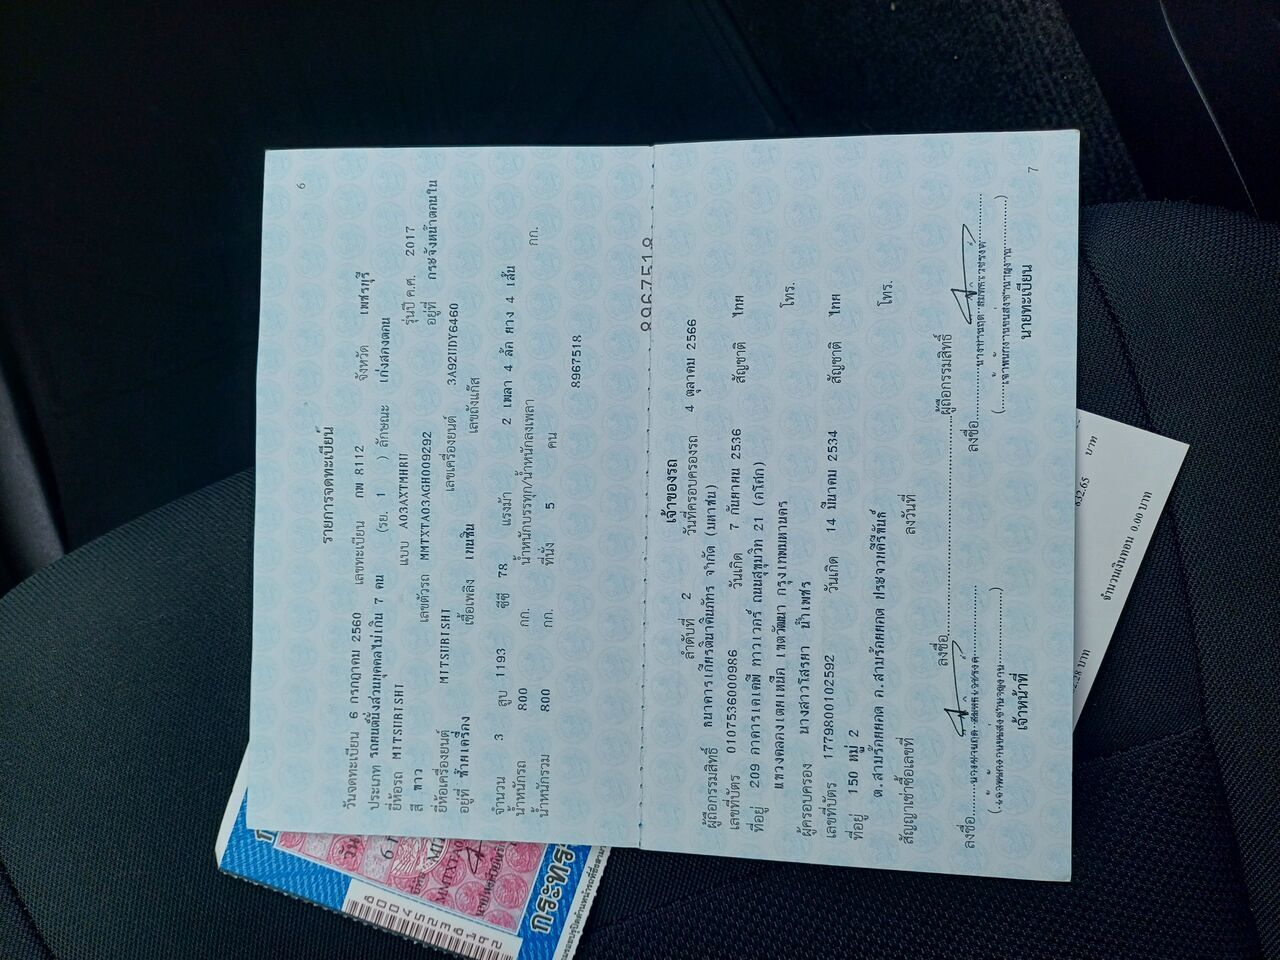 6
รายการจดทะเบียน
วันจดทะเบียน 6 กรกฎาคม 2560 เลขทะเบียน กพ 8112 จังหวัด เพชรบุรี
ประเภท รถยนต์นั่งส่วนบุคคลไม่เกิน 7 คน (รย. 1 ) ลักษณะ เก๋งสองตอน
ยี่ห้อรถ MITSUBISHI แบบ A03AXTMHRU รุ่นปี ค.ศ. 2017
สี ขาว เลขตัวรถ MMTXTA03AGH009292 อยู่ที่ กระจังหน้าตอนใน
ยี่ห้อเครื่องยนต์ MITSUBISHI เลขเครื่องยนต์ 3A92UDY6460
อยู่ที่ ซ้ายเครื่อง เชื้อเพลิง เบนซิน เลขถังแก๊ส
จำนวน 3 สูบ 1193 ซีซี 78 แรงม้า 2 เพลา 4 ล้อ ยาง 4 เส้น
น้ำหนักรถ 800 กก. น้ำหนักบรรทุก/น้ำหนักลงเพลา กก.
น้ำหนักรวม 800 กก. ที่นั่ง 5 คน
8967518
8967518
เจ้าของรถ
ลำดับที่ 2 วันที่ครอบครองรถ 4 ตุลาคม 2566
ผู้ถือกรรมสิทธิ์ ธนาคารเกียรตินาคินภัทร จำกัด (มหาชน)
เลขที่บัตร 0107536000986 วันเกิด 7 กันยายน 2536 สัญชาติ ไทย
ที่อยู่ 209 อาคารเคเคพี ทาวเวอร์ ถนนสุขุมวิท 21 (อโศก)
แขวงคลองเตยเหนือ เขตวัฒนา กรุงเทพมหานคร โทร.
ผู้ครอบครอง นางสาวโสรยา น้ำเพชร
เลขที่บัตร 1779800102592 วันเกิด 14 มีนาคม 2534 สัญชาติ ไทย
ที่อยู่ 150 หมู่ 2
ต.สามร้อยยอด อ.สามร้อยยอด ประจวบคีรีขันธ์ โทร.
สัญญาเช่าซื้อเลขที่ ลงวันที่
ลงชื่อ ผู้ถือกรรมสิทธิ์
ลงชื่อ
(เจ้าพนักงานขนส่งชำนาญงาน)
เจ้าหน้าที่
ลงชื่อ
(เจ้าพนักงานขนส่งชำนาญงาน)
นายทะเบียน
7
632.65 บาท
2.28 บาท
จำนวนเงินทอน 0.00 บาท
กระทรว